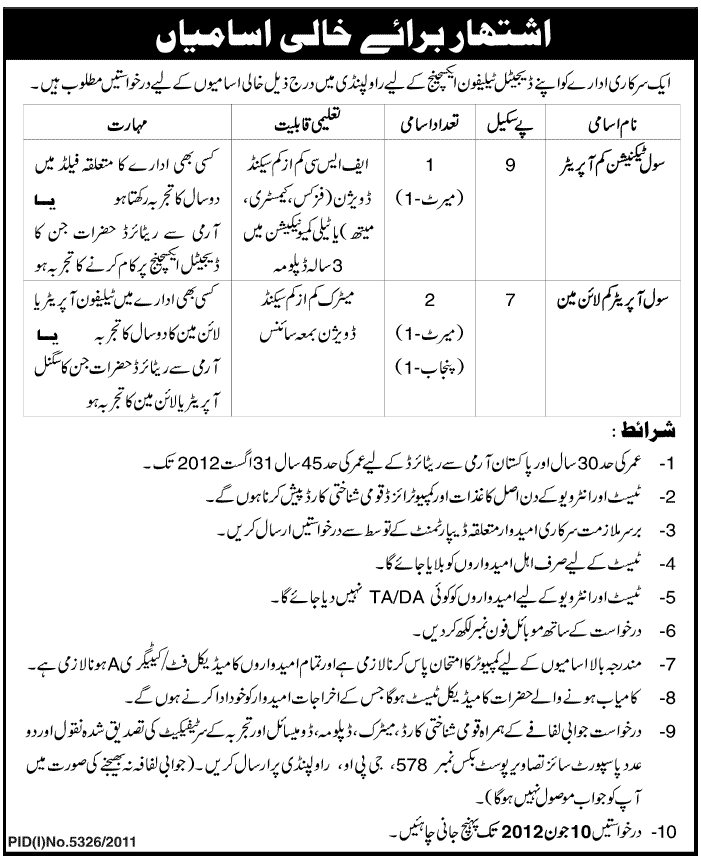 اشتہار برائے خالی اسامیاں
ایک سرکاری ادارے کو اپنے ڈیجیٹل ٹیلیفون ایکسچینج کے لیے راولپنڈی میں درج ذیل خالی اسامیوں کے لیے درخواستیں مطلوب ہیں۔
نام اسامی پے سکیل تعداد اسامی تعلیمی قابلیت مہارت
سول ٹیکنیشن کم آپریٹر 9 1 ایف ایس سی کم از کم سیکنڈ کسی بھی ادارے کا متعلقہ فیلڈ میں
(میرٹ-1) ڈویژن (فزکس، کیمسٹری، دو سال کا تجربہ رکھتا ہو یا
میتھ) یا ٹیلی کمیونیکیشن میں آرمی سے ریٹائرڈ حضرات جن کا
3 سالہ ڈپلومہ ڈیجیٹل ایکسچینج پر کام کرنے کا تجربہ ہو
سول آپریٹر کم لائن مین 7 2 میٹرک کم از کم سیکنڈ کسی بھی ادارے میں ٹیلیفون آپریٹر یا
(میرٹ-1) ڈویژن بمعہ سائنس لائن مین کا دو سال کا تجربہ یا
(پنجاب-1) آرمی سے ریٹائرڈ حضرات جن کا سگنل
آپریٹر یا لائن مین کا تجربہ ہو
شرائط :
1- عمر کی حد 30 سال اور پاکستان آرمی سے ریٹائرڈ کے لیے عمر کی حد 45 سال 31 اگست 2012 تک۔
2- ٹیسٹ اور انٹرویو کے دن اصل کاغذات اور کمپیوٹرائزڈ قومی شناختی کارڈ پیش کرنا ہوں گے۔
3- برسر ملازمت سرکاری امیدوار متعلقہ ڈیپارٹمنٹ کے توسط سے درخواستیں ارسال کریں۔
4- ٹیسٹ کے لیے صرف اہل امیدواروں کو بلایا جائے گا۔
5- ٹیسٹ اور انٹرویو کے لیے امیدواروں کو کوئی TA/DA نہیں دیا جائے گا۔
6- درخواست کے ساتھ موبائل فون نمبر لکھ کر دیں۔
7- مندرجہ بالا اسامیوں کے لیے کمپیوٹر کا امتحان پاس کرنا لازمی ہے اور تمام امیدواروں کا میڈیکل فٹ/کیٹیگری A ہونا لازمی ہے۔
8- کامیاب ہونے والے حضرات کا میڈیکل ٹیسٹ ہوگا جس کے اخراجات امیدوار کو خود ادا کرنے ہوں گے۔
9- درخواست جوابی لفافے کے ہمراہ قومی شناختی کارڈ، میٹرک، ڈپلومہ، ڈومیسائل اور تجربہ کے سرٹیفیکیٹ کی تصدیق شدہ نقول اور دو
عدد پاسپورٹ سائز تصاویر پوسٹ بکس نمبر 578، جی پی او، راولپنڈی پر ارسال کریں۔ (جوابی لفافہ نہ بھیجنے کی صورت میں
آپ کو جواب موصول نہیں ہوگا)۔
10- درخواستیں 10 جون 2012 تک پہنچ جانی چاہئیں۔
PID(I)No.5326/2011